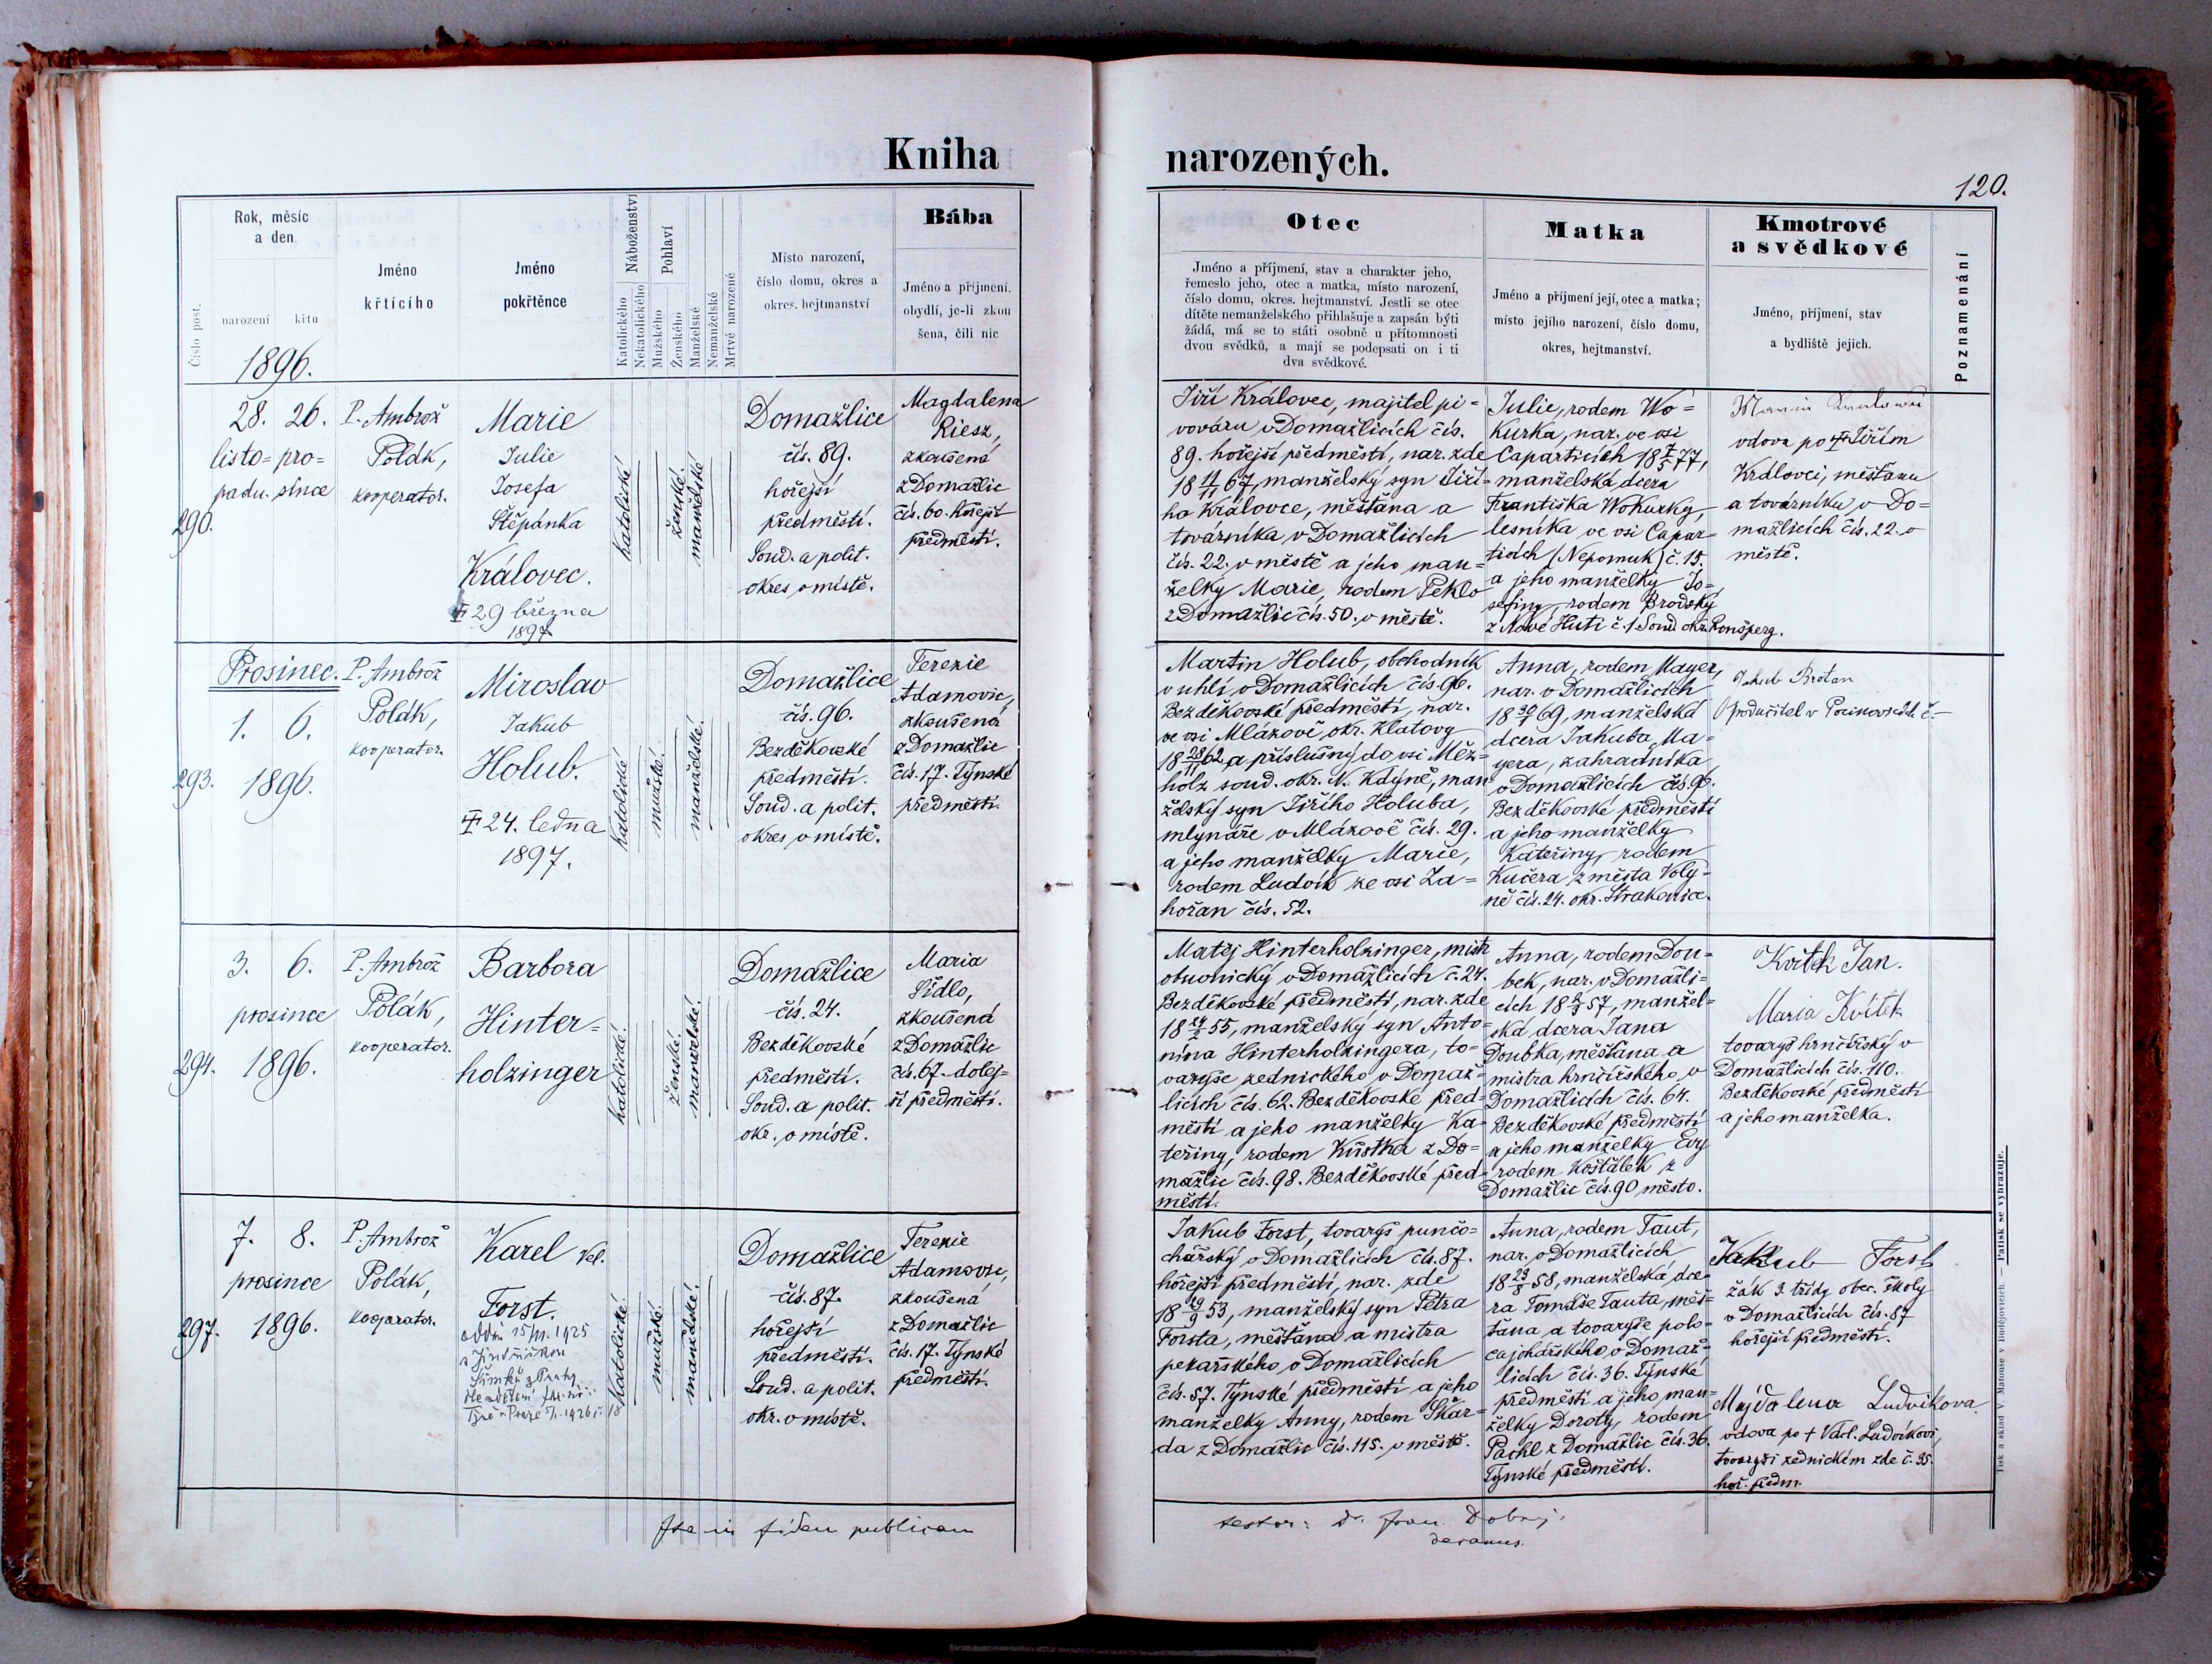 Kniha
narozených.
120.
Číslo post.
Rok, měsíc
a den
narození
křtu
Jméno
křtícího
Jméno
pokřtěnce
Náboženství
Katolického
Nekatolického
Pohlaví
Mužského
Ženského
Manželské
Nemanželské
Mrtvé narozené
Místo narození,
číslo domu, okres a
okres. hejtmanství
Bába
Jméno a příjmení.
obydlí, je-li zkou
šena, čili nic
Otec
Jméno a příjmení, stav a charakter jeho,
řemeslo jeho, otec a matka, místo narození,
číslo domu, okres. hejtmanství. Jestli se otec
dítěte nemanželského přihlašuje a zapsán býti
žádá, má se to státi osobně u přítomnosti
dvou svědků, a mají se podepsati on i ti
dva svědkové.
Matka
Jméno a příjmení její, otec a matka;
místo jejího narození, číslo domu,
okres, hejtmanství.
Kmotrové
a svědkové
Jméno, příjmení, stav
a bydliště jejich.
Poznamenání
1896.
290.
28. 26.
listo= pro=
padu. since
P. Ambrož
Polák,
kooperator.
Marie
Julie
Josefa
Štěpánka
Královec.
29 března
1897
katolické
ženské
manželské
Domažlice
čís. 89.
hořejší
předměstí.
Soud. a polit.
okres v místě.
Magdalena
Riesz,
zkoušená
z Domažlic
čís. 60. hořejší
předměstí.
Jiří Královec, majitel pi=
vováru v Domažlicích čís.
89. hořejší předměstí, nar. zde
18 11/11 67, manželský syn Jiří=
ho Královce, měšťana a
továrníka v Domažlicích
čís. 22. v městě a jeho man=
želky Marie, rodem Peklo
z Domažlic čís. 50. v městě.
Julie, rodem Wo=
kurka, nar. ve vsi
Caparticích 18 7/5 77,
manželská dcera
Františka Wokurky,
lesníka ve vsi Capar=
ticích (Nepomuk) č. 15.
a jeho manželky Jo=
sefiny, rodem Brodský
z Nové Huti č. 1 Soud. okr. Ronšperg.
vdova po Jiřím
Královci, měšťanu
a továrníku v Do=
mažlicích čís. 22. v
městě.
293.
Prosinec.
1. 6.
1896.
P. Ambrož
Polák,
kooperator.
Miroslav
Jakub
Holub.
24. ledna
1897.
katolické
mužské.
manželské.
Domažlice
čís. 96.
Bezděkovské
předměstí.
Soud. a polit.
okres v místě.
Terezie
Adamovic,
zkoušená
z Domažlic
čís. 17. Týnské
předměstí.
Martin Holub, obchodník
v uhlí v Domažlicích čís. 96.
Bezděkovské předměstí, nar.
ve vsi Mlázově okr. Klatovy
18 28/11 62, a příslušný do vsi Měz=
holz soud. okr. N. Kdyně, man
želský syn Jiřího Holuba,
mlynáře v Mlázově čís. 29.
a jeho manželky Marie,
rodem Ludvík ze vsi Za=
hořan čís. 52.
Anna, rodem Mayer,
nar. v Domažlicích
18 30/7 69, manželská
dcera Jakuba Ma=
yera, zahradníka
v Domažlicích čís. 96.
Bezděkovské předměstí
a jeho manželky
Kateřiny, rodem
Kučera z města Voly=
ně čís. 24. okr. Strakonice.
Jakub Brotan
294.
3. 6.
prosince
1896.
P. Ambrož
Polák,
kooperator.
Barbora
Hinter=
holzinger
katolické.
ženské.
manželské.
Domažlice
čís. 24.
Bezděkovské
předměstí.
Soud. a polit.
okr. v místě.
Maria
Šídlo,
zkoušená
z Domažlic
čís. 67. dolej=
ší předměstí.
Matěj Hinterholzinger, mistr
obuvnický v Domažlicích č. 24.
Bezděkovské předměstí, nar. zde
18 24/2 55, manželský syn Anto=
nína Hinterholzingera, to=
varyše zednického v Domaž=
licích čís. 62. Bezděkovské před=
městí a jeho manželky Ka=
teřiny, rodem Kůstka z Do=
mažlic čís. 98. Bezděkovské před=
městí.
Anna, rodem Dou=
bek, nar. v Domažli=
cích 18 2/3 57, manžel=
ská dcera Jana
Doubka, měšťana a
mistra hrnčířského v
Domažlicích čís. 64.
Bezděkovské předměstí
a jeho manželky Evy
rodem Košťálek z
Domažlic čís. 90 město.
Kvítek Jan.
Maria Kvítek
tovaryš hrnčířský v
Domažlicích čís. 110.
Bezděkovské předměstí
a jeho manželka.
297.
7. 8.
prosince
1896.
P. Ambrož
Polák,
kooperator.
Karel Vel.
Forst.
15/11. 1925
Katolické.
mužské.
manželské.
Domažlice
čís. 87.
hořejší
předměstí.
Soud. a polit.
okr. v místě.
Terezie
Adamovic,
zkoušená
z Domažlic
čís. 17. Týnské
předměstí.
Jakub Forst, tovaryš punčo=
chářský v Domažlicích čís. 87.
hořejší předměstí, nar. zde
18 29/9 53, manželský syn Petra
Forsta, měšťana a mistra
pekařského v Domažlicích
čís. 57. Týnské předměstí a jeho
manželky Anny, rodem Škar=
da z Domažlic čís. 115. v městě.
Anna, rodem Taut,
nar. v Domažlicích
18 23/8 58, manželská dce=
ra Tomáše Tauta, měš=
ťana a tovaryše
v Domaž=
licích čís. 36. Týnské
předměstí a jeho man=
želky Doroty, rodem
Pachl z Domažlic čís. 36.
Týnské předměstí.
Jakub Forst
žák 3. třídy obec. školy
v Domažlicích čís. 87
hořejší předměstí.
Majdalena Ludvíkova.
vdova po † Václ. Ludvíkovi,
tovaryši zednickém zde č. 35.
hoř. předm.
Ita in fidem publicam
testor: Dr. Fran. Dobrý.
decanus.
Tisk a sklad V. Matouše v Budějovicích. — Patisk se vyhrazuje.